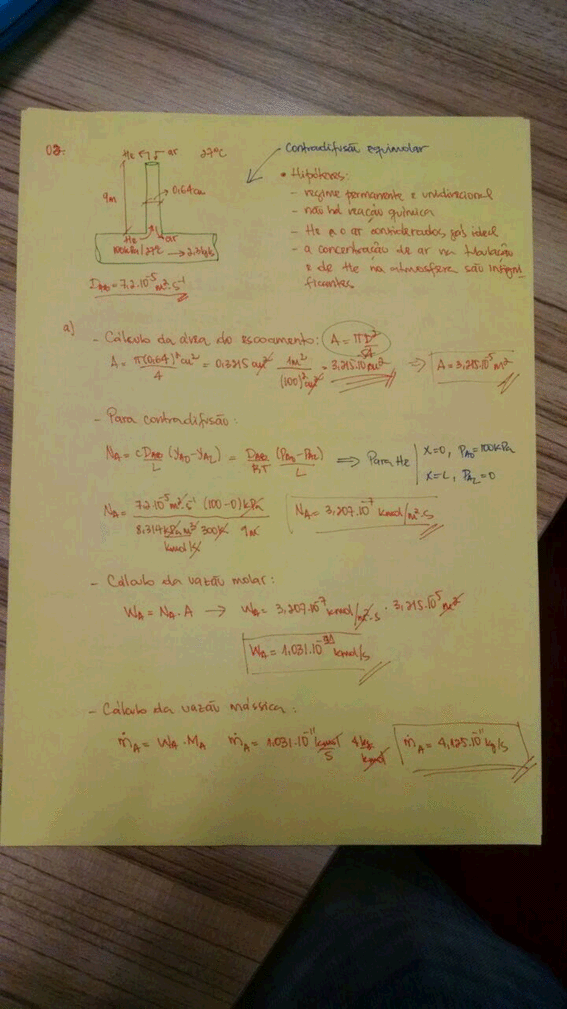 02.
He ar 27°C
Contradifusão equimolar
9m
0,64cm
He ar
100kPa/27°C → 2,7kg/s
D_AB = 7,2.10⁻⁵ m².s⁻¹
• Hipóteses:
- regime permanente e unidirecional
- não há reação química
- He e o ar considerados gás ideal
- a concentração de ar na tubulação
e de He na atmosfera são insigni
ficantes
a)
- Cálculo da área do escoamento: A = πD²/4
A = π(0,64)² cm²/4 = 0,3215 cm² 1m²/(100)² cm² = 3,215.10⁻⁵ m² ⇒ A = 3,215.10⁻⁵ m²
- Para contradifusão:
N_A = c D_AB/L (y_A0 - y_AL) = D_AB/R.T (P_A0 - P_AL)/L ⇒ Para He x=0, P_A0 = 100kPa
x=L, P_AL = 0
N_A = 7,2.10⁻⁵ m².s⁻¹ (100-0) kPa / 8,314 kPa m³/kmol/K 300K 9m N_A = 3,207.10⁻⁷ kmol/m².s
- Cálculo da vazão molar:
W_A = N_A . A → W_A = 3,207.10⁻⁷ kmol/m².s . 3,215.10⁻⁵ m²
W_A = 1,031.10⁻¹¹ kmol/s
- Cálculo da vazão mássica:
ṁ_A = W_A . M_A ṁ_A = 1,031.10⁻¹¹ kmol/s 4 kg/kmol ṁ_A = 4,125.10⁻¹¹ kg/s